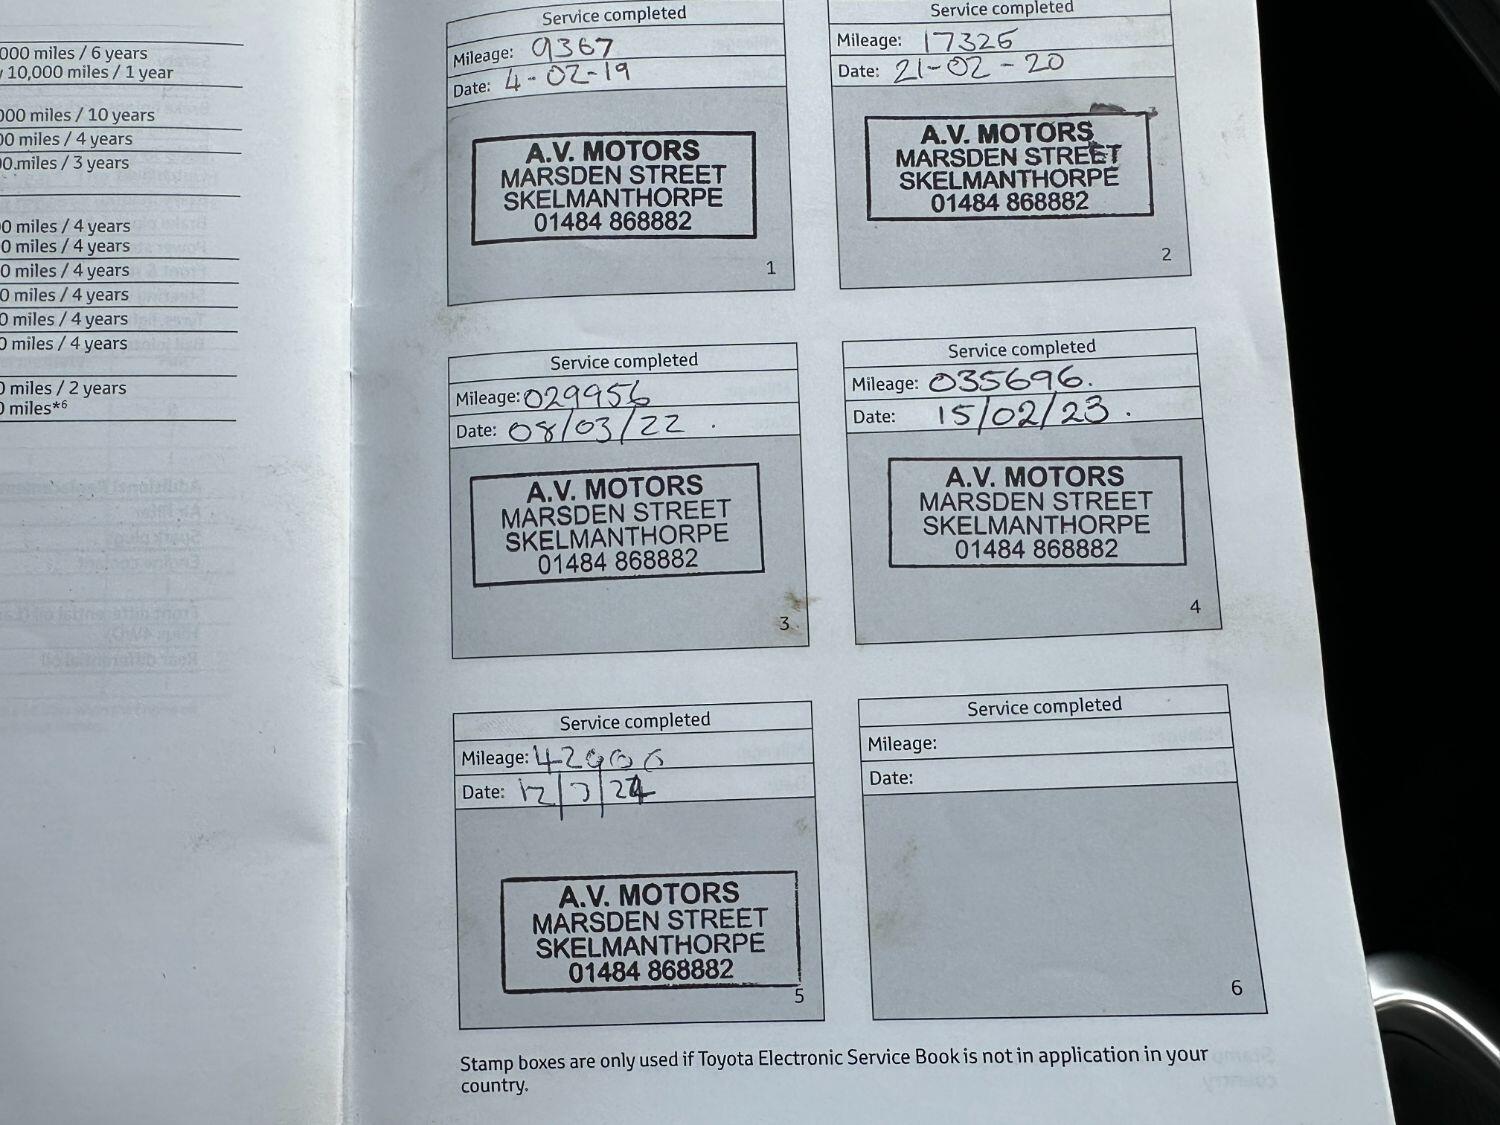 000 miles / 6 years
10,000 miles / 1 year
000 miles / 10 years
00 miles / 4 years
00.miles / 3 years
0 miles / 4 years
0 miles / 4 years
0 miles / 4 years
0 miles / 4 years
0 miles / 4 years
0 miles / 4 years
0 miles / 2 years
0 miles*6
Service completed
Mileage: 9367
Date: 4-02-19
A.V. MOTORS
MARSDEN STREET
SKELMANTHORPE
01484 868882
1
Service completed
Mileage: 17326
Date: 21-02-20
A.V. MOTORS
MARSDEN STREET
SKELMANTHORPE
01484 868882
2
Service completed
Mileage: 029956
Date: 08/03/22 .
A.V. MOTORS
MARSDEN STREET
SKELMANTHORPE
01484 868882
3
Service completed
Mileage: 035696.
Date: 15/02/23 .
A.V. MOTORS
MARSDEN STREET
SKELMANTHORPE
01484 868882
4
Service completed
Mileage:
Date: 12/3/24
A.V. MOTORS
MARSDEN STREET
SKELMANTHORPE
01484 868882
5
Service completed
Mileage:
Date:
6
Stamp boxes are only used if Toyota Electronic Service Book is not in application in your
country.